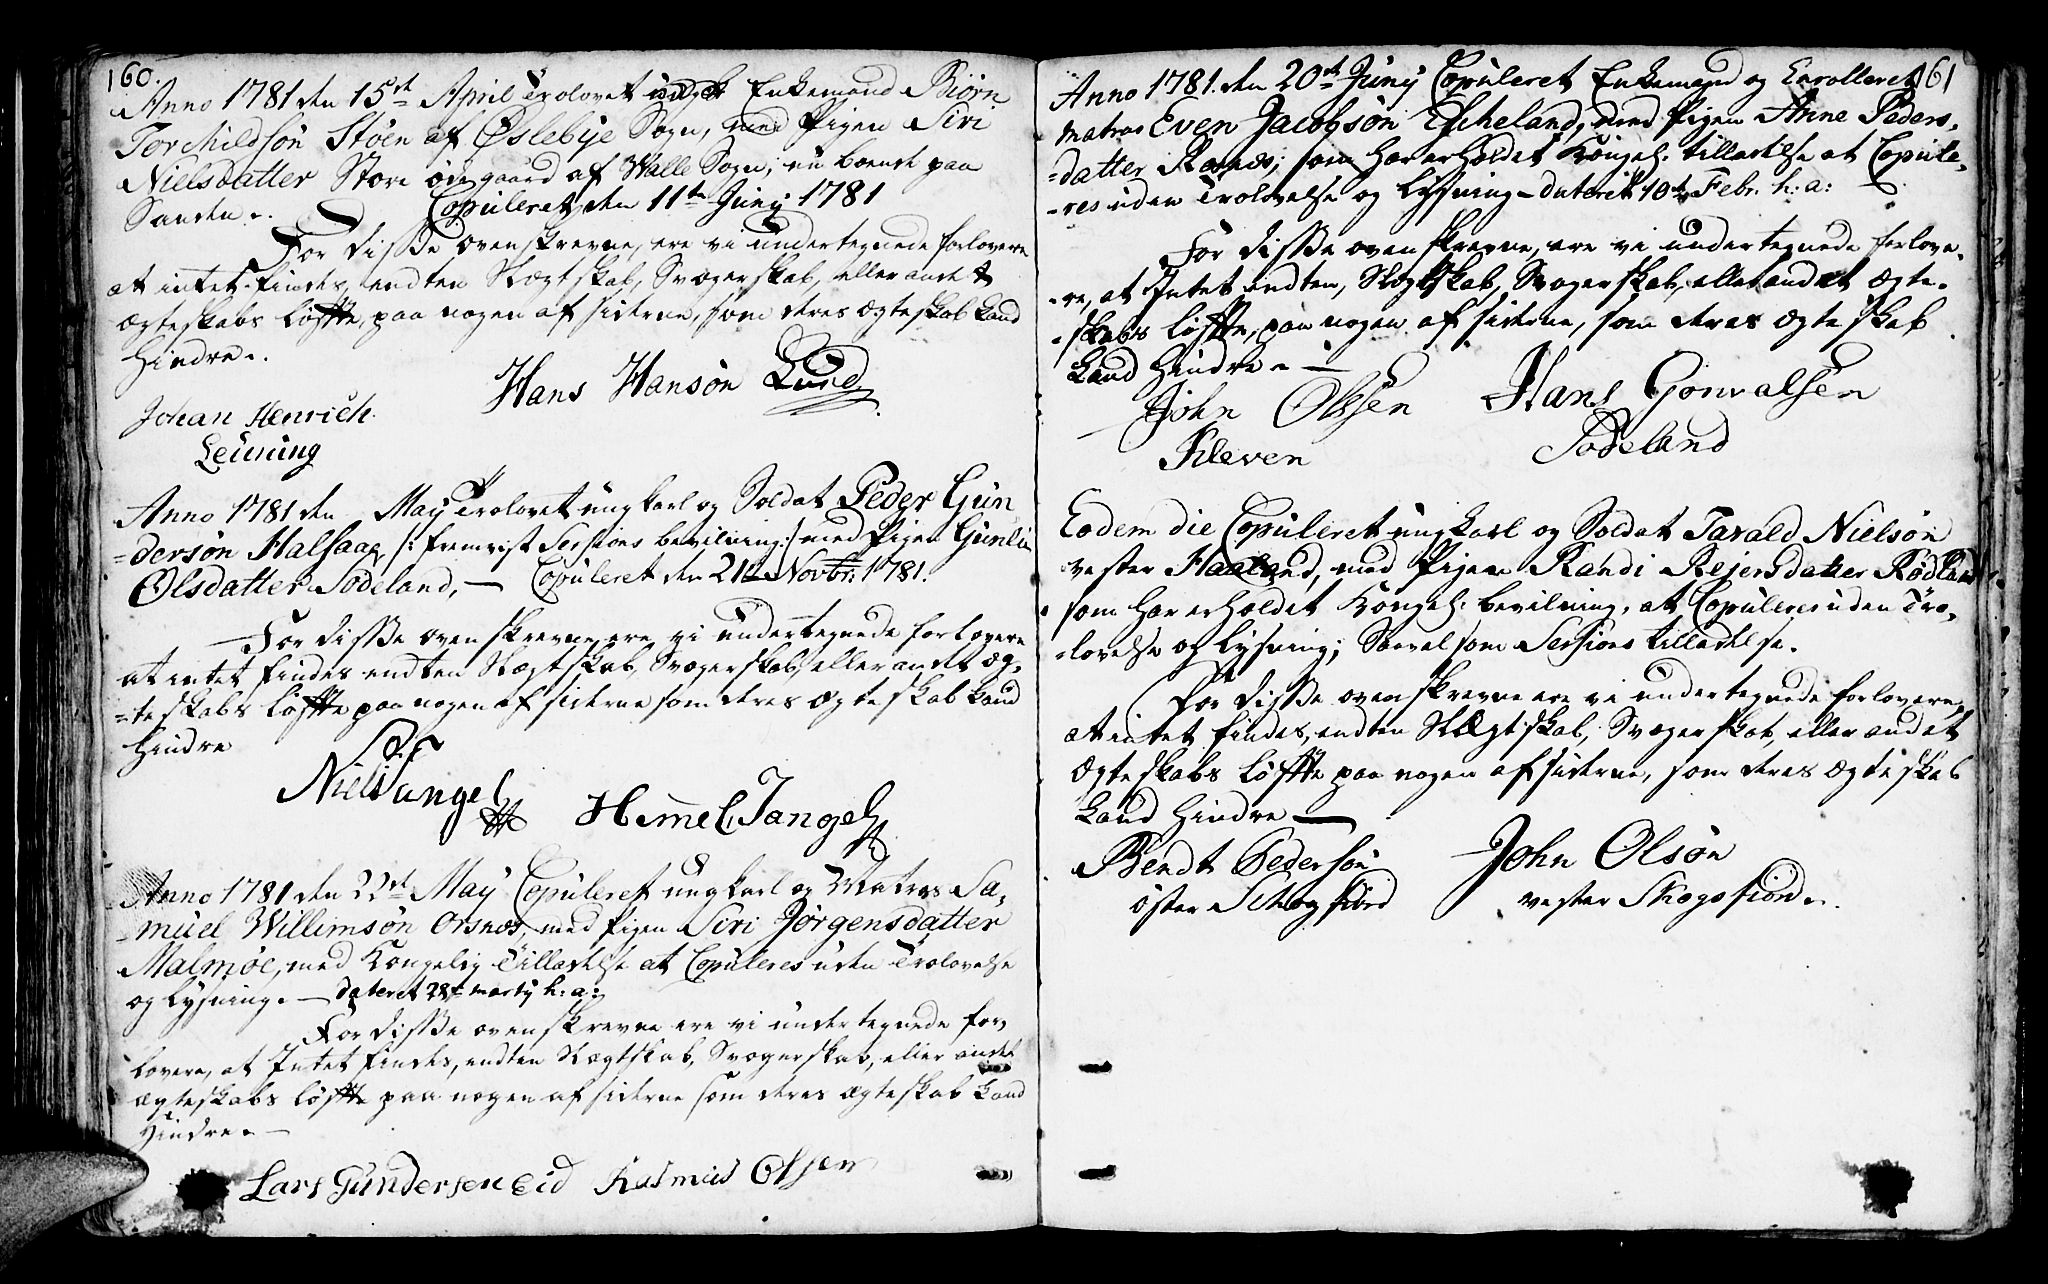 160.
Anno 1781 den 15de April Trolovet Enkemand Biørn
Torchildsøn Støen af Øslebye Sogn, med Pigen Siri
Nielsdatter Store ødegaard af Halle Sogn, nu boende paa
Sanden.
Copuleret den 11te Juny 1781
For disse ovenskrevne, ere vi undertegnede forlovere
at intet findes, endten Slægtskab, Svogerskab, eller andet
ægteskabs løffte, paa nogen af siderne, som deres ægteskab kand
Hindre.
Hans Hansøn Lund
Johan Henrich
Leuning
Anno 1781 den May Trolovet ungkarl og Soldat Peder Gun
=dersøn Halsaae, /: fremvist Sessions bevilning :/ med Pigen Gunlu
Olsdatter Sodeland, — Copuleret den 21de Novbr: 1781.
For disse ovenskrevne, ere vi undertegnede forlovere
at intet findes endten Slægtskab, Svogerskab, eller andet æg-
=teskabs løffte paa nogen af siderne som deres ægteskab kand
Hindre
Niels Tangel
Hemel Tangel
Anno 1781 den 22de May Copuleret ungkarl og Matros Sa-
=muel Willimsøn Orsnes, med Pigen Siri Jørgensdatter
Malmøe, med Kongelig Tilladelse at Copuleres uden Trolovelse
og Lysning. — dateret 28de Marty h: a:
For disse ovenskrevne ere vi undertegnede for-
lovere, at Intet findes, endten Slægtskab, Svogerskab, eller andet
ægteskabs løffte paa nogen af siderne som deres ægteskab kand
Hindre. —
Lars Gundersen Eid Rasmus Olsen
161
Anno 1781 den 20de Juny Copuleret Enkemand og Enrolleret
Matros Even Jacobsøn Escheland, med Pigen Anne Peders-
=datter Rones; som har erholdet Kongel: tilladelse at Copule-
=res uden Trolovelse og Lysning – dateret 10de Febr. h: a:
For disse ovenskrevne, ere vi undertegnede forlove-
=re, at Intet endten, Slægtskab, Svogerskab, eller andet ægte-
=skabs løffte, paa nogen af siderne, som deres ægteskab
kand Hindre. —
John Olsen Hans Gonvalsen
Kleven Sodeland
Eodem die Copuleret ungkarl og Soldat Tarald Nielsøn
vester Haaland, med Pigen Randi Rejersdatter Rødland
som har erholdet Kongel: bevilning, at Copuleres uden Tro-
=lovelse og Lysning; Saavel som Sessions tilladelse.
For disse ovenskrevne ere vi undertegnede forlovere,
at intet findes, endten Slægtskab, Svogerskab, eller andet
ægteskabs løffte paa nogen af siderne, som deres ægteskab
kand Hindre —
Bendt Pedersøn John Olsøn
øster Skogsfiord vester Skogsfiord.